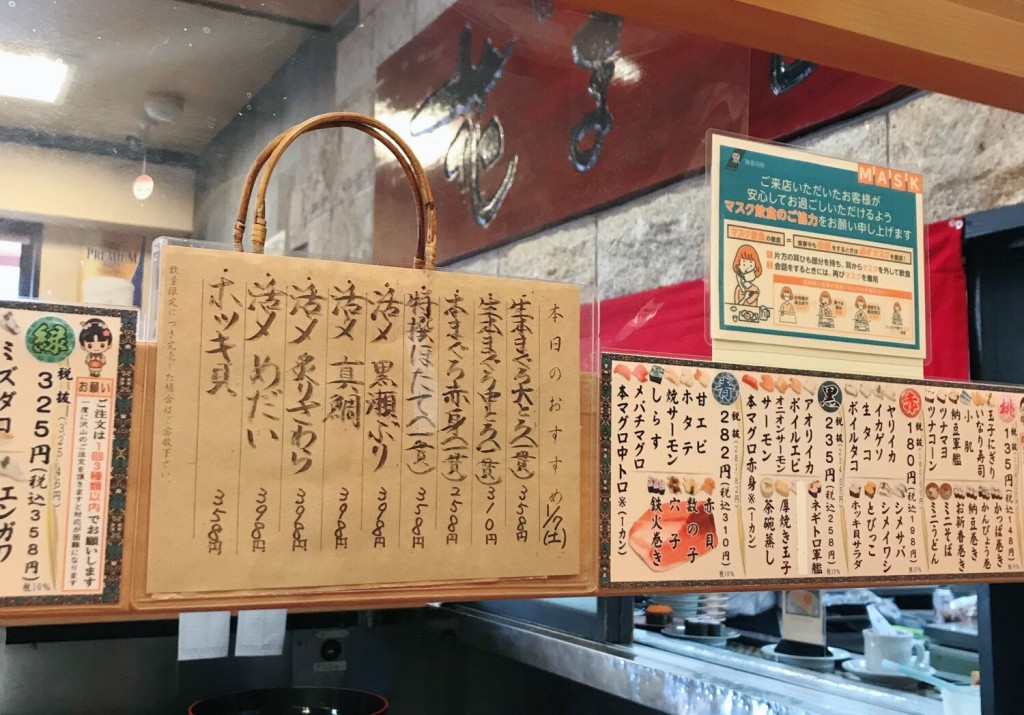 本日のおすすめ 1/7(土)
生本まぐろ大とろ(一貫) 350円
生本まぐろ中とろ(一貫) 310円
本まぐろ赤身(一貫) 250円
特撰ほたて(一貫) 350円
活〆 黒瀬ぶり 398円
活〆 真鯛 398円
活〆 炙りさわら 398円
活〆 めだい 398円
ホッキ貝 358円
数量限定につき完売した場合はご容赦下さい。
MASK
ご来店いただいたお客様が
安心してお過ごしいただけるよう
マスク飲食のご協力をお願い申し上げます
片方の耳ひも部分を持ち、耳からマスクを外して飲食
会話をするときには、再びマスクを着用
桃
税抜
135円
(税込148円)
玉子にぎり
いなり寿司
納豆軍艦
ツナマヨ
ツナコーン
かっぱ巻き
かんぴょう巻
納豆巻き
お新香巻き
ミニそば
ミニうどん
赤
税抜
180円
(税込198円)
ヤリイカ
イカゲソ
生タコ
ボイルタコ
シメサバ
シメイワシ
とびっこ
ホッキ貝サラダ
黒
税抜
235円
(税込258円)
アオリイカ
ボイルエビ
オニオンサーモン
サーモン
本マグロ赤身※(一カン)
ネギトロ軍艦
厚焼き玉子
茶碗蒸し
青
税抜
282円
(税込310円)
甘エビ
ホタテ
焼サーモン
しらす
メバチマグロ
本マグロ中トロ※(一カン)
赤貝
数の子
穴子
鉄火巻き
お願い
ご注文は1回3種類以内でお願いします
一度に沢山のご注文を頂きますと対応が困難になります
緑
税抜
325円
(税込358円)
税10%
ミズダコ
エンガワ
PREMIUM